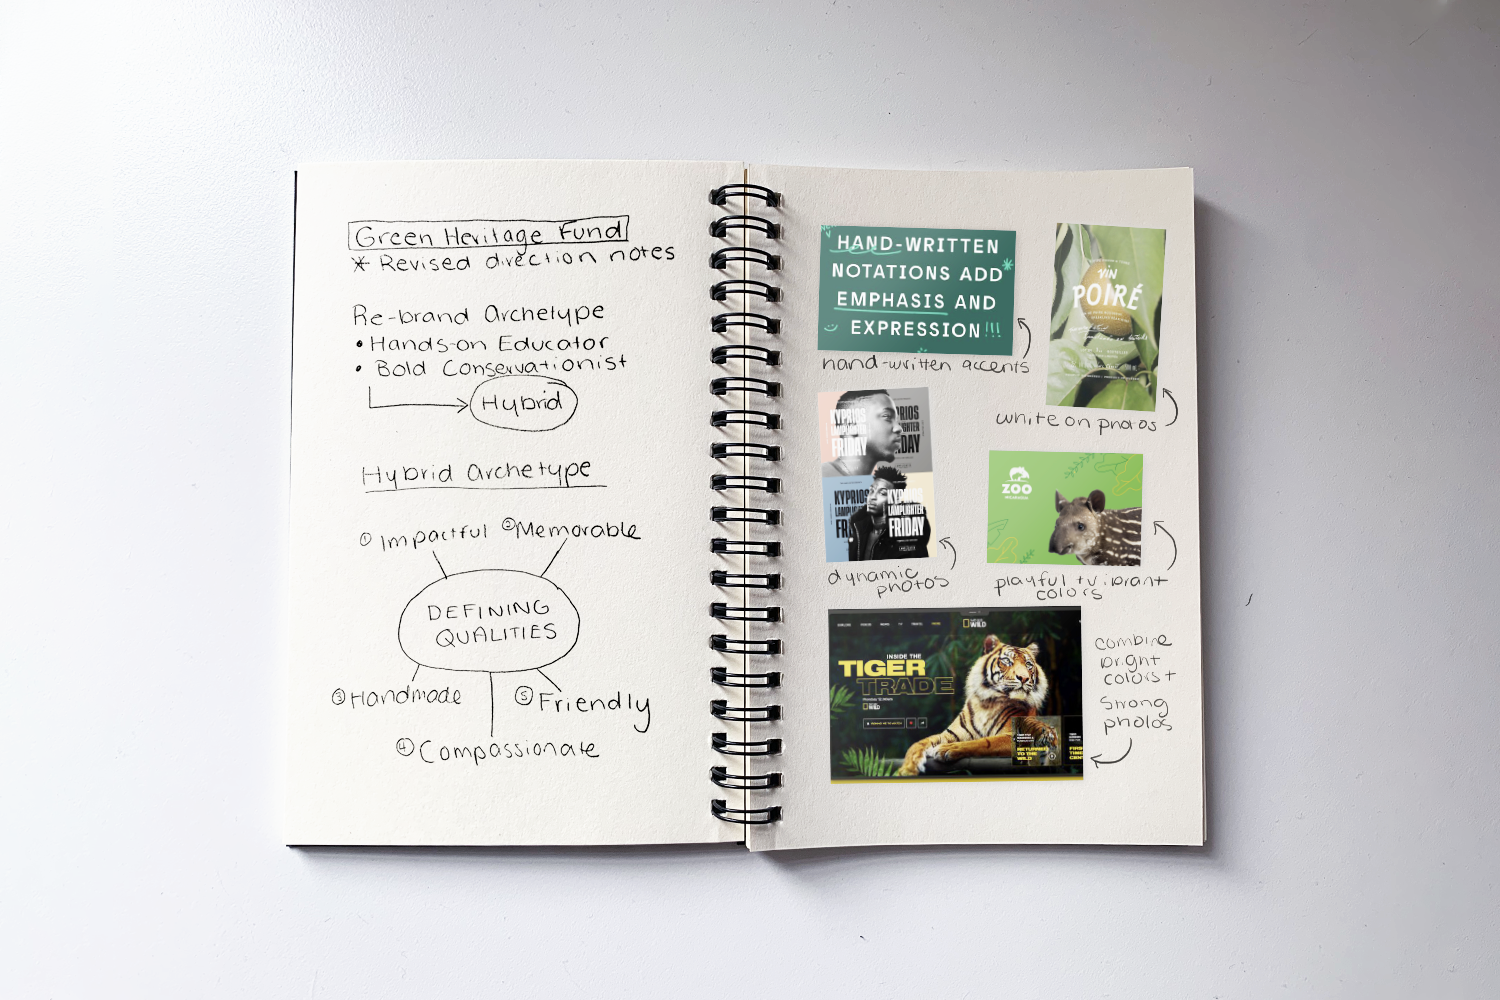 Green Heritage Fund
* Revised direction notes
Re-brand Archetype
• Hands-on Educator
• Bold Conservationist
Hybrid
Hybrid Archetype
① Impactful
② Memorable
DEFINING
QUALITIES
③ Handmade
⑤ Friendly
④ Compassionate
HAND-WRITTEN
NOTATIONS ADD
EMPHASIS AND
EXPRESSION!!!
hand-written accents
VIN
POIRÉ
white on photos
KYPRIOS
LAMPLIGHTER
FRIDAY
KYPRIOS
LAMPLIGHTER
FRIDAY
dynamic
photos
ZOO
playful + vibrant
colors
WILD
INSIDE THE
TIGER
TRADE
WILD
RETURNED
TO THE
WILD
combine
bright
colors +
strong
photos